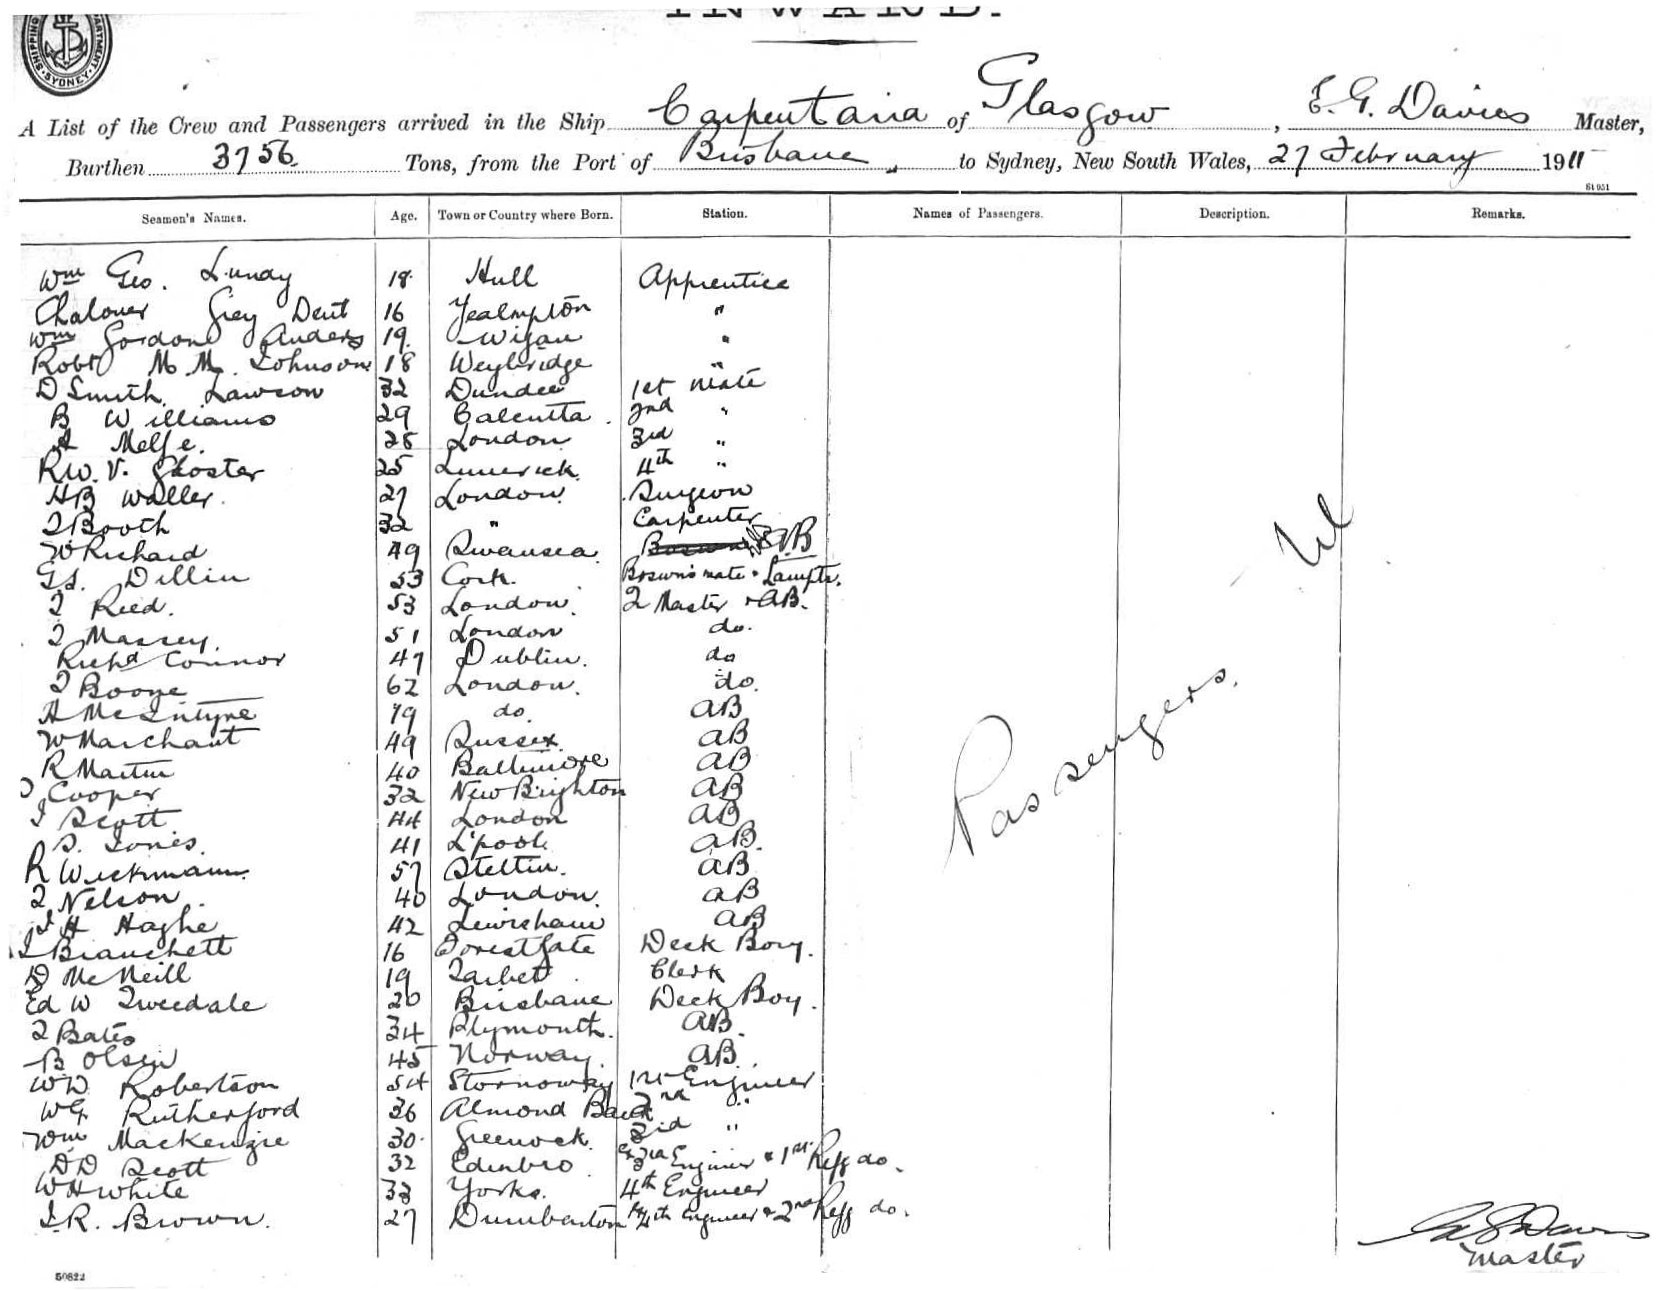 INWARD.
SHIPPING DEPARTMENT SYDNEY
A List of the Crew and Passengers arrived in the Ship Carpentaria of Glasgow, E. G. Davies Master,
Burthen 3756 Tons, from the Port of Brisbane, to Sydney, New South Wales, 27 February 1911
61051
Seamen's Names. Age. Town or Country where Born. Station. Names of Passengers. Description. Remarks.
Wm Geo. Lunay 18 Hull Apprentice
Chaloner Grey Dent 16 Yealmpton "
Wm Gordon Anders 19. Wigan "
Robt M. M. Johnson 18 Weybridge "
D Smith Lawson 32 Dundee 1st Mate
B Williams 29 Calcutta. 2nd "
A 28 London 3rd "
R.W. V. Gloster 25 Limerick 4th "
HB Waller. 27 London. Surgeon
J Booth 32 " Carpenter
W Richard 49 Swansea AB
Dillin 53 Cork. Boswn's mate & Lampts.
J Reed. 53 London. 2 Master & AB.
J Massey. 51 London do.
Richd Connor 47 Dublin. do
J Boorne 62 London. do.
A McIntyre 19 do. AB
W Marchant 49 Sussex. AB
R Martin 40 Baltimore AB
J Cooper 32 New Brighton AB
J Scott 44 London AB
S. Jones. 41 L'pool. AB.
R Wickmann. 57 Stettin. AB
J Nelson. 40 London. AB
J H Haghe 42 Lewisham AB
J Branchett 16 Forest Gate Deck Boy.
D McNeill 19 Tarbett. Clerk
Ed W Tweedale 20 Brisbane Deck Boy.
J Bates 34 Plymouth. AB.
B Olsen 45 Norway. AB.
W D. Robertson 54 Stornoway 1st Engineer
WG Rutherford 36 Almond Bank 2nd "
Wm Mackenzie 30. Greenock. 3rd "
D D Scott 32 Edinbro Ex 3rd Engineer & 1st Reff do.
W H White 33 Yorks. 4th Engineer
J.R. Brown. 27 Dumbarton Ex 4th Engineer & 2nd Reff do.
Passengers. Nil
Davies
Master
50822